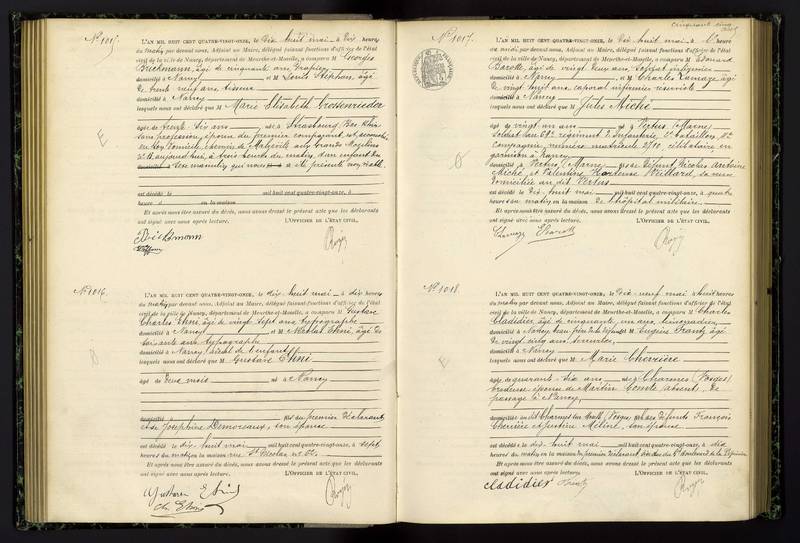 No 1015.
L'AN MIL HUIT CENT QUATRE-VINGT-ONZE, le Dix huit mai à Dix heures
du Matin par devant nous, Adjoint au Maire, délégué faisant fonctions d'officier de l'état
civil de la ville de Nancy, département de Meurthe-et-Moselle, a comparu M Georges
Bechmann, âgé de cinquante ans,
domicilié à Nancy et M Louis Stéphan, âgé
de trente neuf ans tisseur
domicilié à Nancy
lesquels nous ont déclaré que M Marie Elisabeth Grossenrieder
âgée de trente six ans née à Strasbourg, Bas-Rhin
sans profession, épouse du premier comparant, est accouchée
en son domicile, chemin de Malzéville aux Grands Moulins
aujourd'hui, à trois heures du matin, d'un enfant du
sexe masculin qui nous a été présenté sans vie.
est décédé le mil huit cent quatre-vingt-onze, à
heure d en la maison
Et après nous être assuré du décès, nous avons dressé le présent acte que les déclarants
ont signé avec nous après lecture. L'OFFICIER DE L'ÉTAT CIVIL,
Bechtmann
No 1016.
L'AN MIL HUIT CENT QUATRE-VINGT-ONZE, le dix huit mai à dix heures
du Matin par devant nous, Adjoint au Maire, délégué faisant fonctions d'officier de l'état
civil de la ville de Nancy, département de Meurthe-et-Moselle, a comparu M Gustave
Charles Eténi, âgé de vingt sept ans, typographe
domicilié à Nancy et M Nicolas Eténi, âgé de
soixante ans, typographe
domicilié à Nancy, aïeul de l'enfant
lesquels nous ont déclaré que M Gustave Eténi
âgé de Deux mois né à Nancy
domicilié fils du premier déclarant
et de Joséphine Demoreaux, son épouse
est décédé le dix huit mai mil huit cent quatre-vingt-onze, à sept
heures du matin en la maison rue St Nicolas no 62.
Et après nous être assuré du décès, nous avons dressé le présent acte que les déclarants
ont signé avec nous après lecture. L'OFFICIER DE L'ÉTAT CIVIL,
Gustave
cinquante cinq
No 1017.
L'AN MIL HUIT CENT QUATRE-VINGT-ONZE, le Dix huit mai à une heure
du midi par devant nous, Adjoint au Maire, délégué faisant fonctions d'officier de l'état
civil de la ville de Nancy, département de Meurthe-et-Moselle, a comparu M Edouard
Barotte, âgé de vingt deux ans, soldat infirmier
domicilié à Nancy et M Charles Ramaze, âgé
de vingt huit ans, caporal infirmier réserviste
domicilié à Nancy
lesquels nous ont déclaré que M Jules Miché
âgé de vingt un ans né à Vertus, (Marne)
Soldat au 69e régiment d'Infanterie, 2e bataillon,
compagnie, numéro matricule célibataire en
garnison à Nancy
domicilié à Vertus (Marne) fils de défunt Nicolas Antoine
Miché, et Valentine Hortense Veillard, sa veuve
domiciliée au dit Vertus
est décédé le Dix huit mai mil huit cent quatre-vingt-onze, à quatre
heures du matin en la maison de l'hôpital militaire.
Et après nous être assuré du décès, nous avons dressé le présent acte que les déclarants
ont signé avec nous après lecture. L'OFFICIER DE L'ÉTAT CIVIL,
No 1018.
L'AN MIL HUIT CENT QUATRE-VINGT-ONZE, le Dix neuf mai à huit heures
du matin par devant nous, Adjoint au Maire, délégué faisant fonctions d'officier de l'état
civil de la ville de Nancy, département de Meurthe-et-Moselle, a comparu M Charles
Cladidier, âgé de cinquante un ans, limonadier
domicilié à Nancy et M Eugène Frantz, âgé
de vingt cinq ans,
domicilié à Nancy
lesquels nous ont déclaré que M Marie Chevrière
âgée de quarante six ans née à Charmes (Vosges)
brodeuse épouse de Martin Comte, absent, de
passage à Nancy,
domiciliée au dit Charmes fille des défunts François
Chevrière et Méline, son épouse
est décédée le dix huit mai mil huit cent quatre-vingt-onze, à dix
heures du matin en la maison du premier déclarant, boulevard de la Pépinière
Et après nous être assuré du décès, nous avons dressé le présent acte que les déclarants
ont signé avec nous après lecture. L'OFFICIER DE L'ÉTAT CIVIL,
Cladidier Frantz